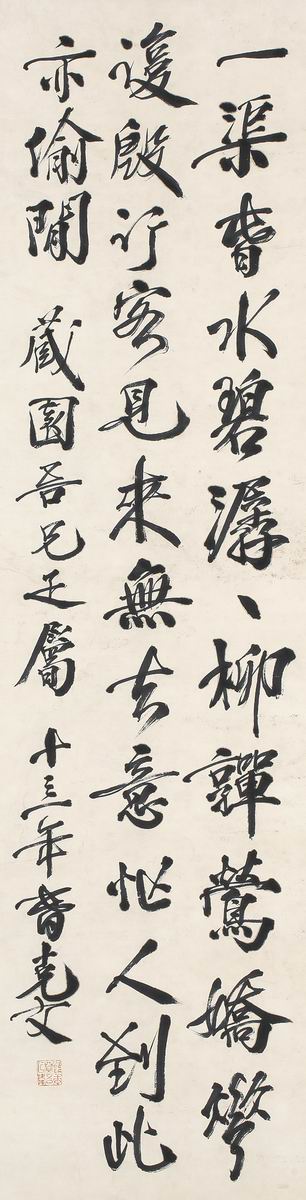 一渠春水碧潺〻柳嚲鶯嬌花
復殷行客見來無去意忙人到此
亦偷閒 藏園吾兄正屬 十三年春克文